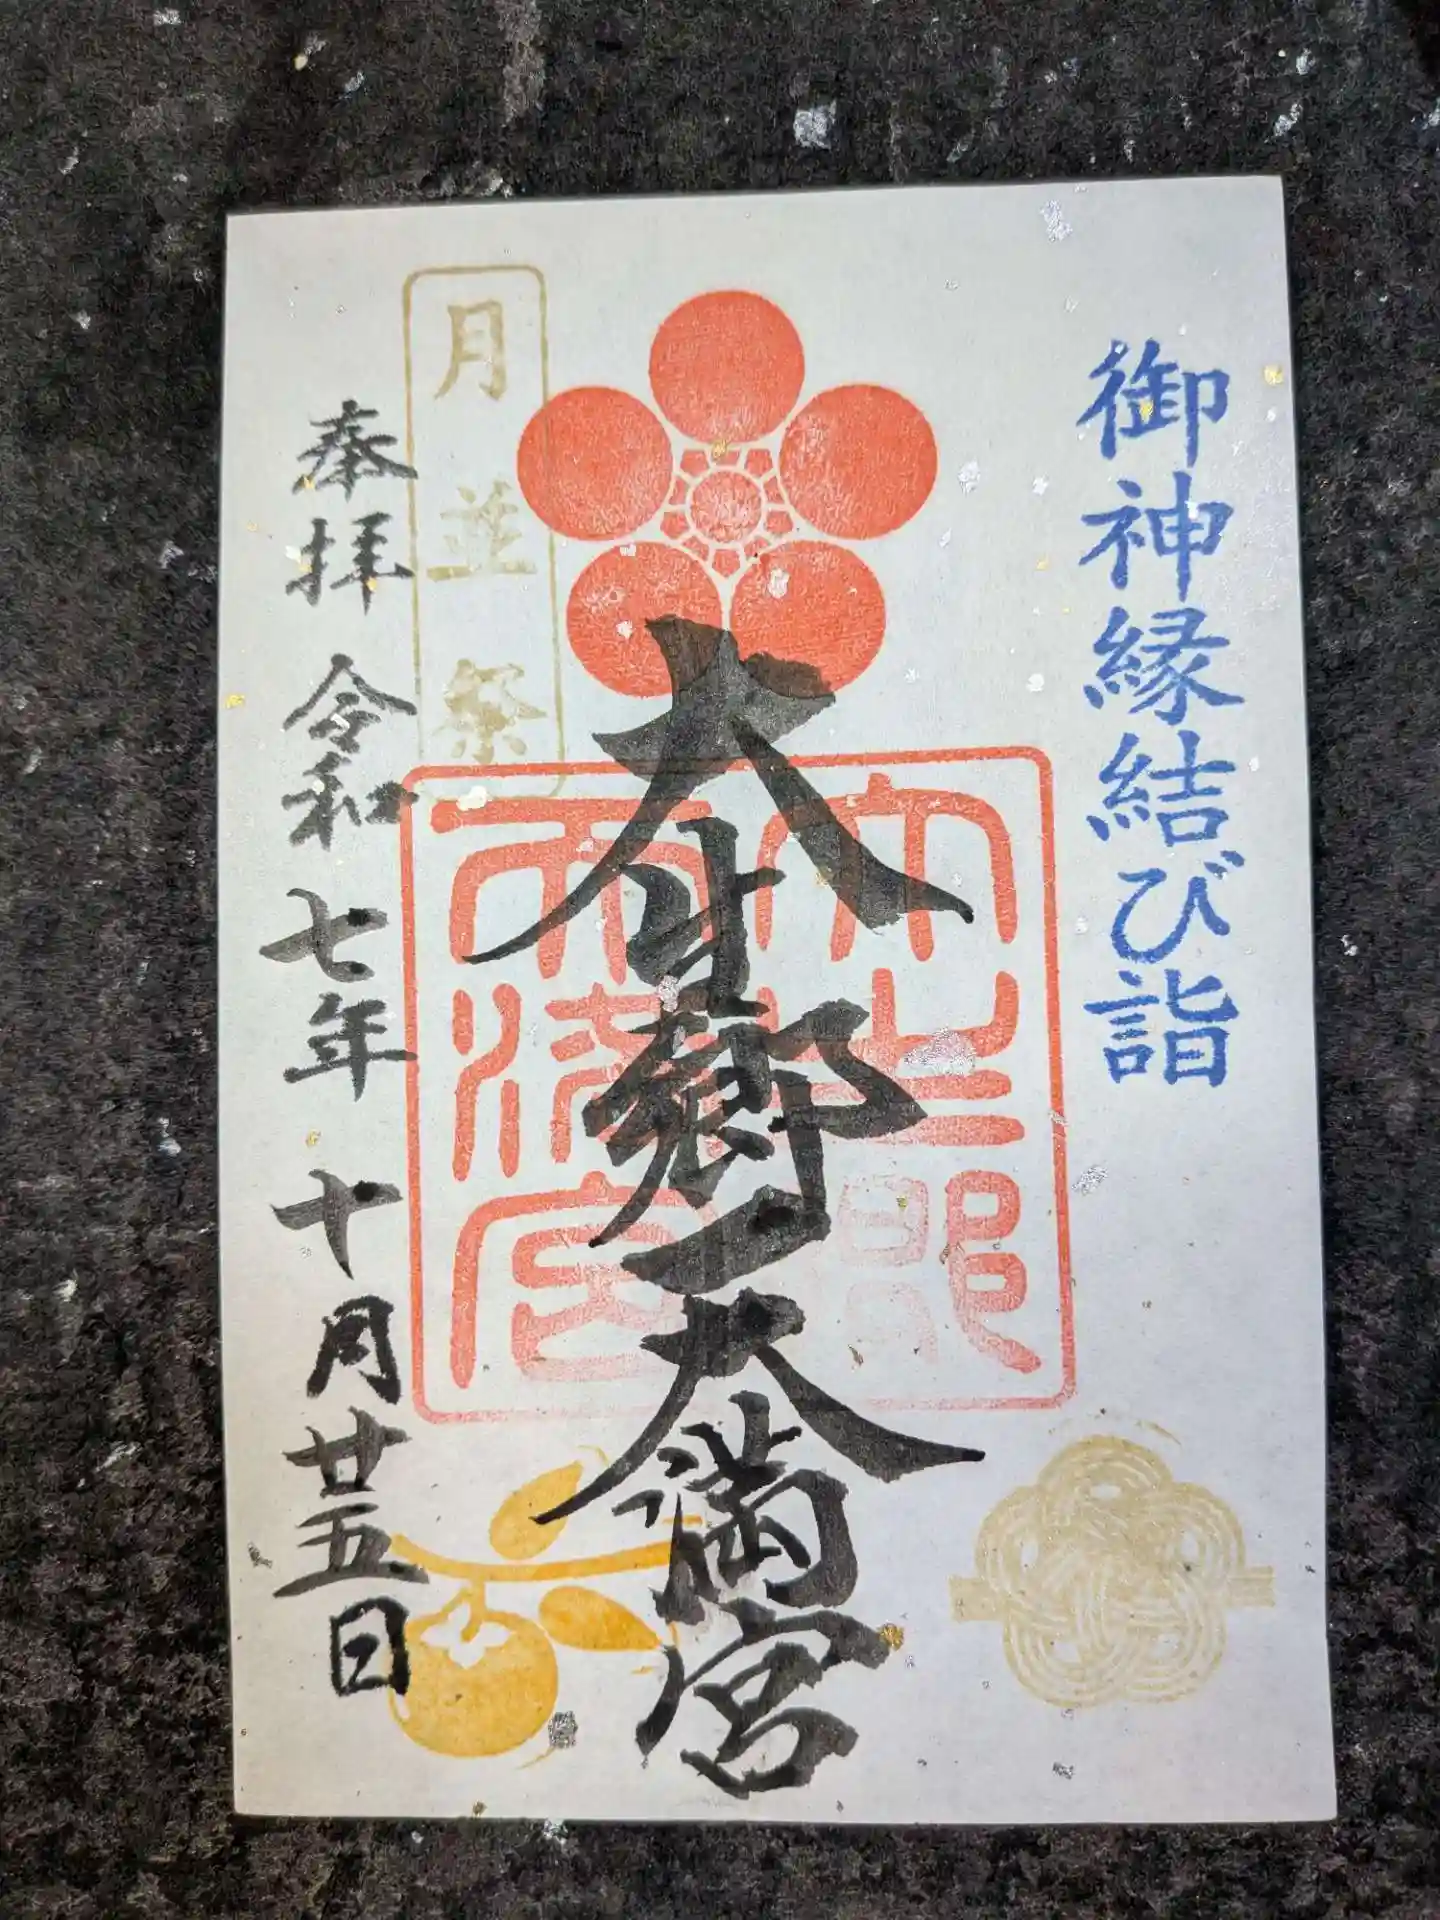 御神縁結び詣
大生郷天満宮
大生郷
天満宮
月並祭
奉拝 令和七年十月廿五日